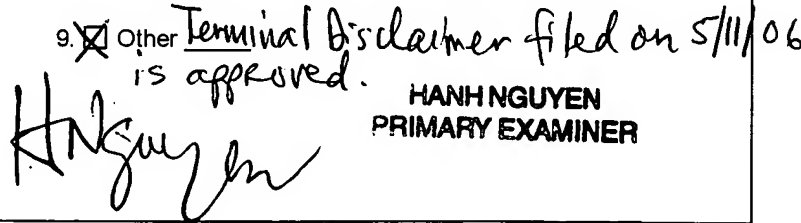 9. ☒ Other Terminal Disclaimer filed on 5/11/06
is approved.
HANH NGUYEN
PRIMARY EXAMINER
HNguyen